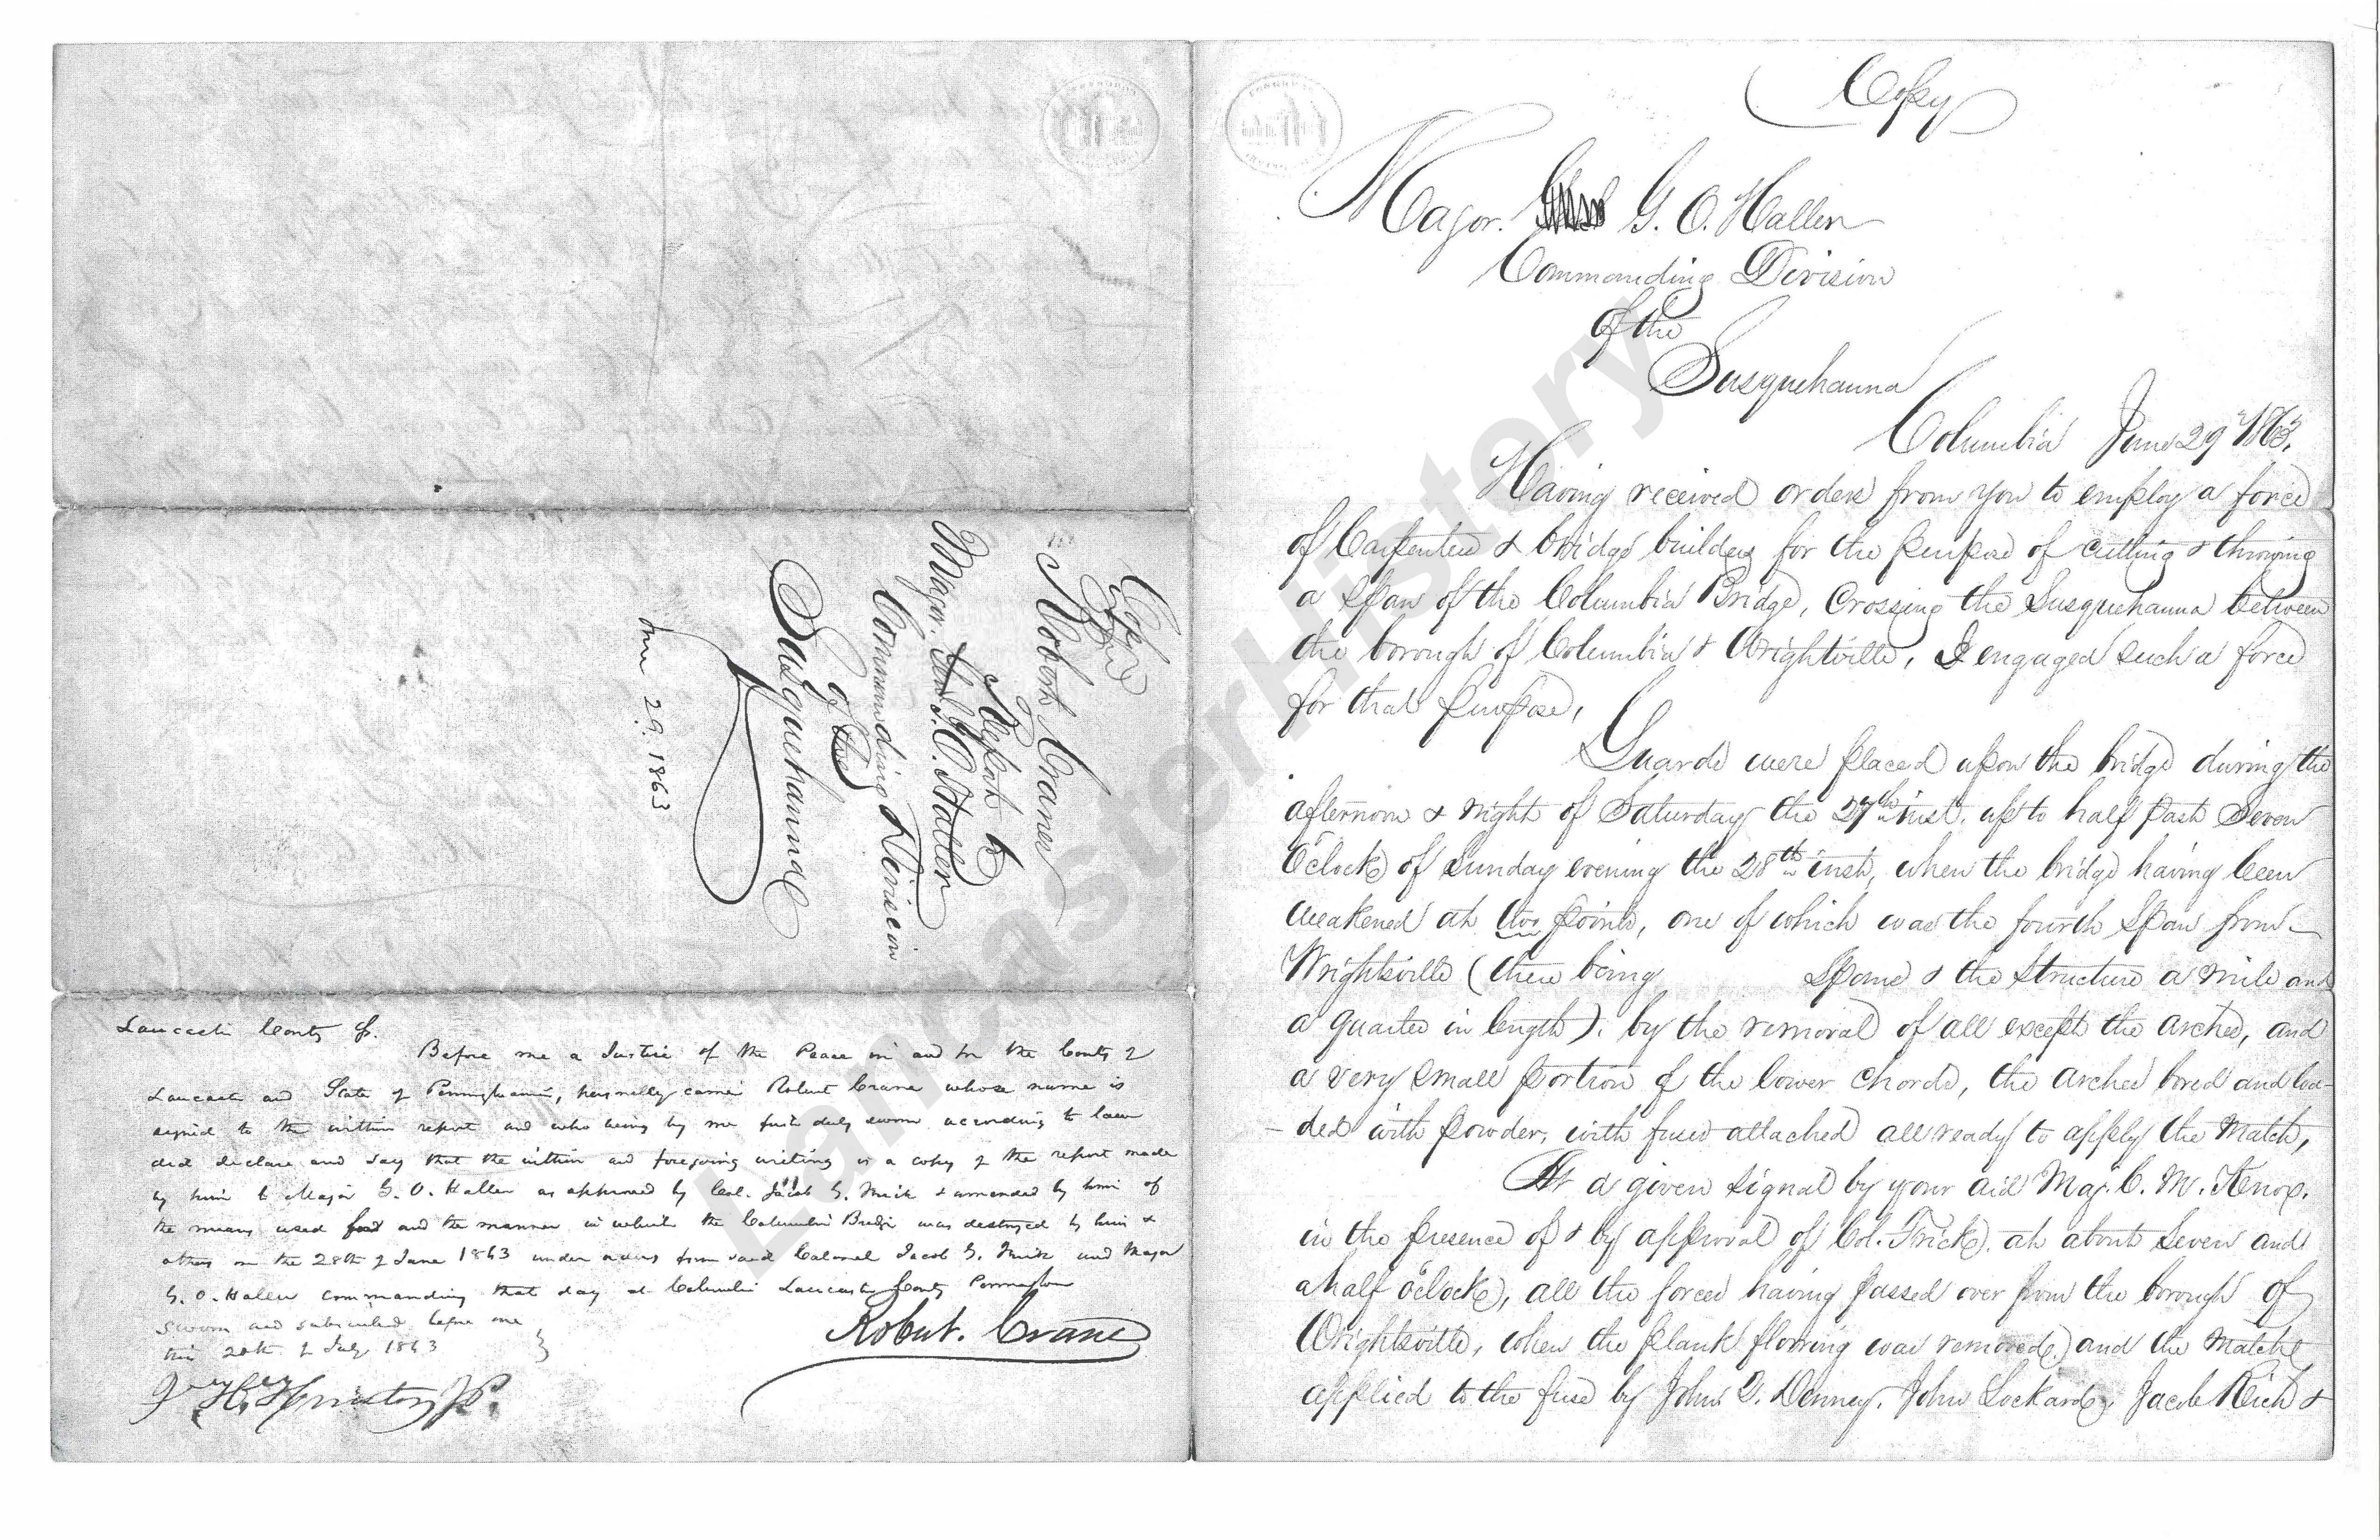 Copy
Major. G. O. Haller
Commanding Division
of the
Susquehanna
Columbia June 29th 1863.
Having received orders from you to employ a force
of Carpenters & bridge builders for the purpose of cutting & throwing
a Span of the Columbia Bridge, Crossing the Susquehanna between
the borough of Columbia & Wrightsville, I engaged such a force
for that purpose,
Guards were placed upon the bridge during the
afternoon & night of Saturday the 27th inst. up to half past Seven
O'clock of Sunday evening the 28th inst, when the bridge having been
weakened at two points, one of which was the fourth Span from
Wrightsville (there being Spans & the Structure a mile and
a quarter in length). by the removal of all except the arches, and
a very small portion of the lower chords, the arches bored and loa-
-ded with powder, with fuses attached all ready to apply the Match,
At a given signal by your aid Maj. C. M. Knox.
in the presence of & by approval of Col. Frick. at about seven and
a half o'clock, all the forces having passed over from the borough of
Wrightsville, when the plank flooring was removed, and the Match
applied to the fuse by John Q. Denney. John Lockard, Jacob Rich &
Copy
Robert Crane
Report to
Major. G. O. Haller
Commanding Division
of the
Susquehanna
June 29. 1863
Lancaster County Ss.
Before me a Justice of the Peace in and for the County of
Lancaster and State of Pennsylvania, personally came Robert Crane whose name is
signed to the within report and who being by me first duly sworn according to law
did declare and say that the within and foregoing writing is a copy of the report made
by him to Major G. O. Haller as approved by Col. Jacob G. Frick & amended by him of
the means used and the manner in which the Columbia Bridge was destroyed by him &
others on the 28th of June 1863 under orders from said Colonel Jacob G. Frick and Major
G. O. Haller commanding that day at Columbia Lancaster County Pennsylvania
Sworn and subscribed before me
this 20th of July 1863
Robert. Crane
J.P.
LancasterHistory